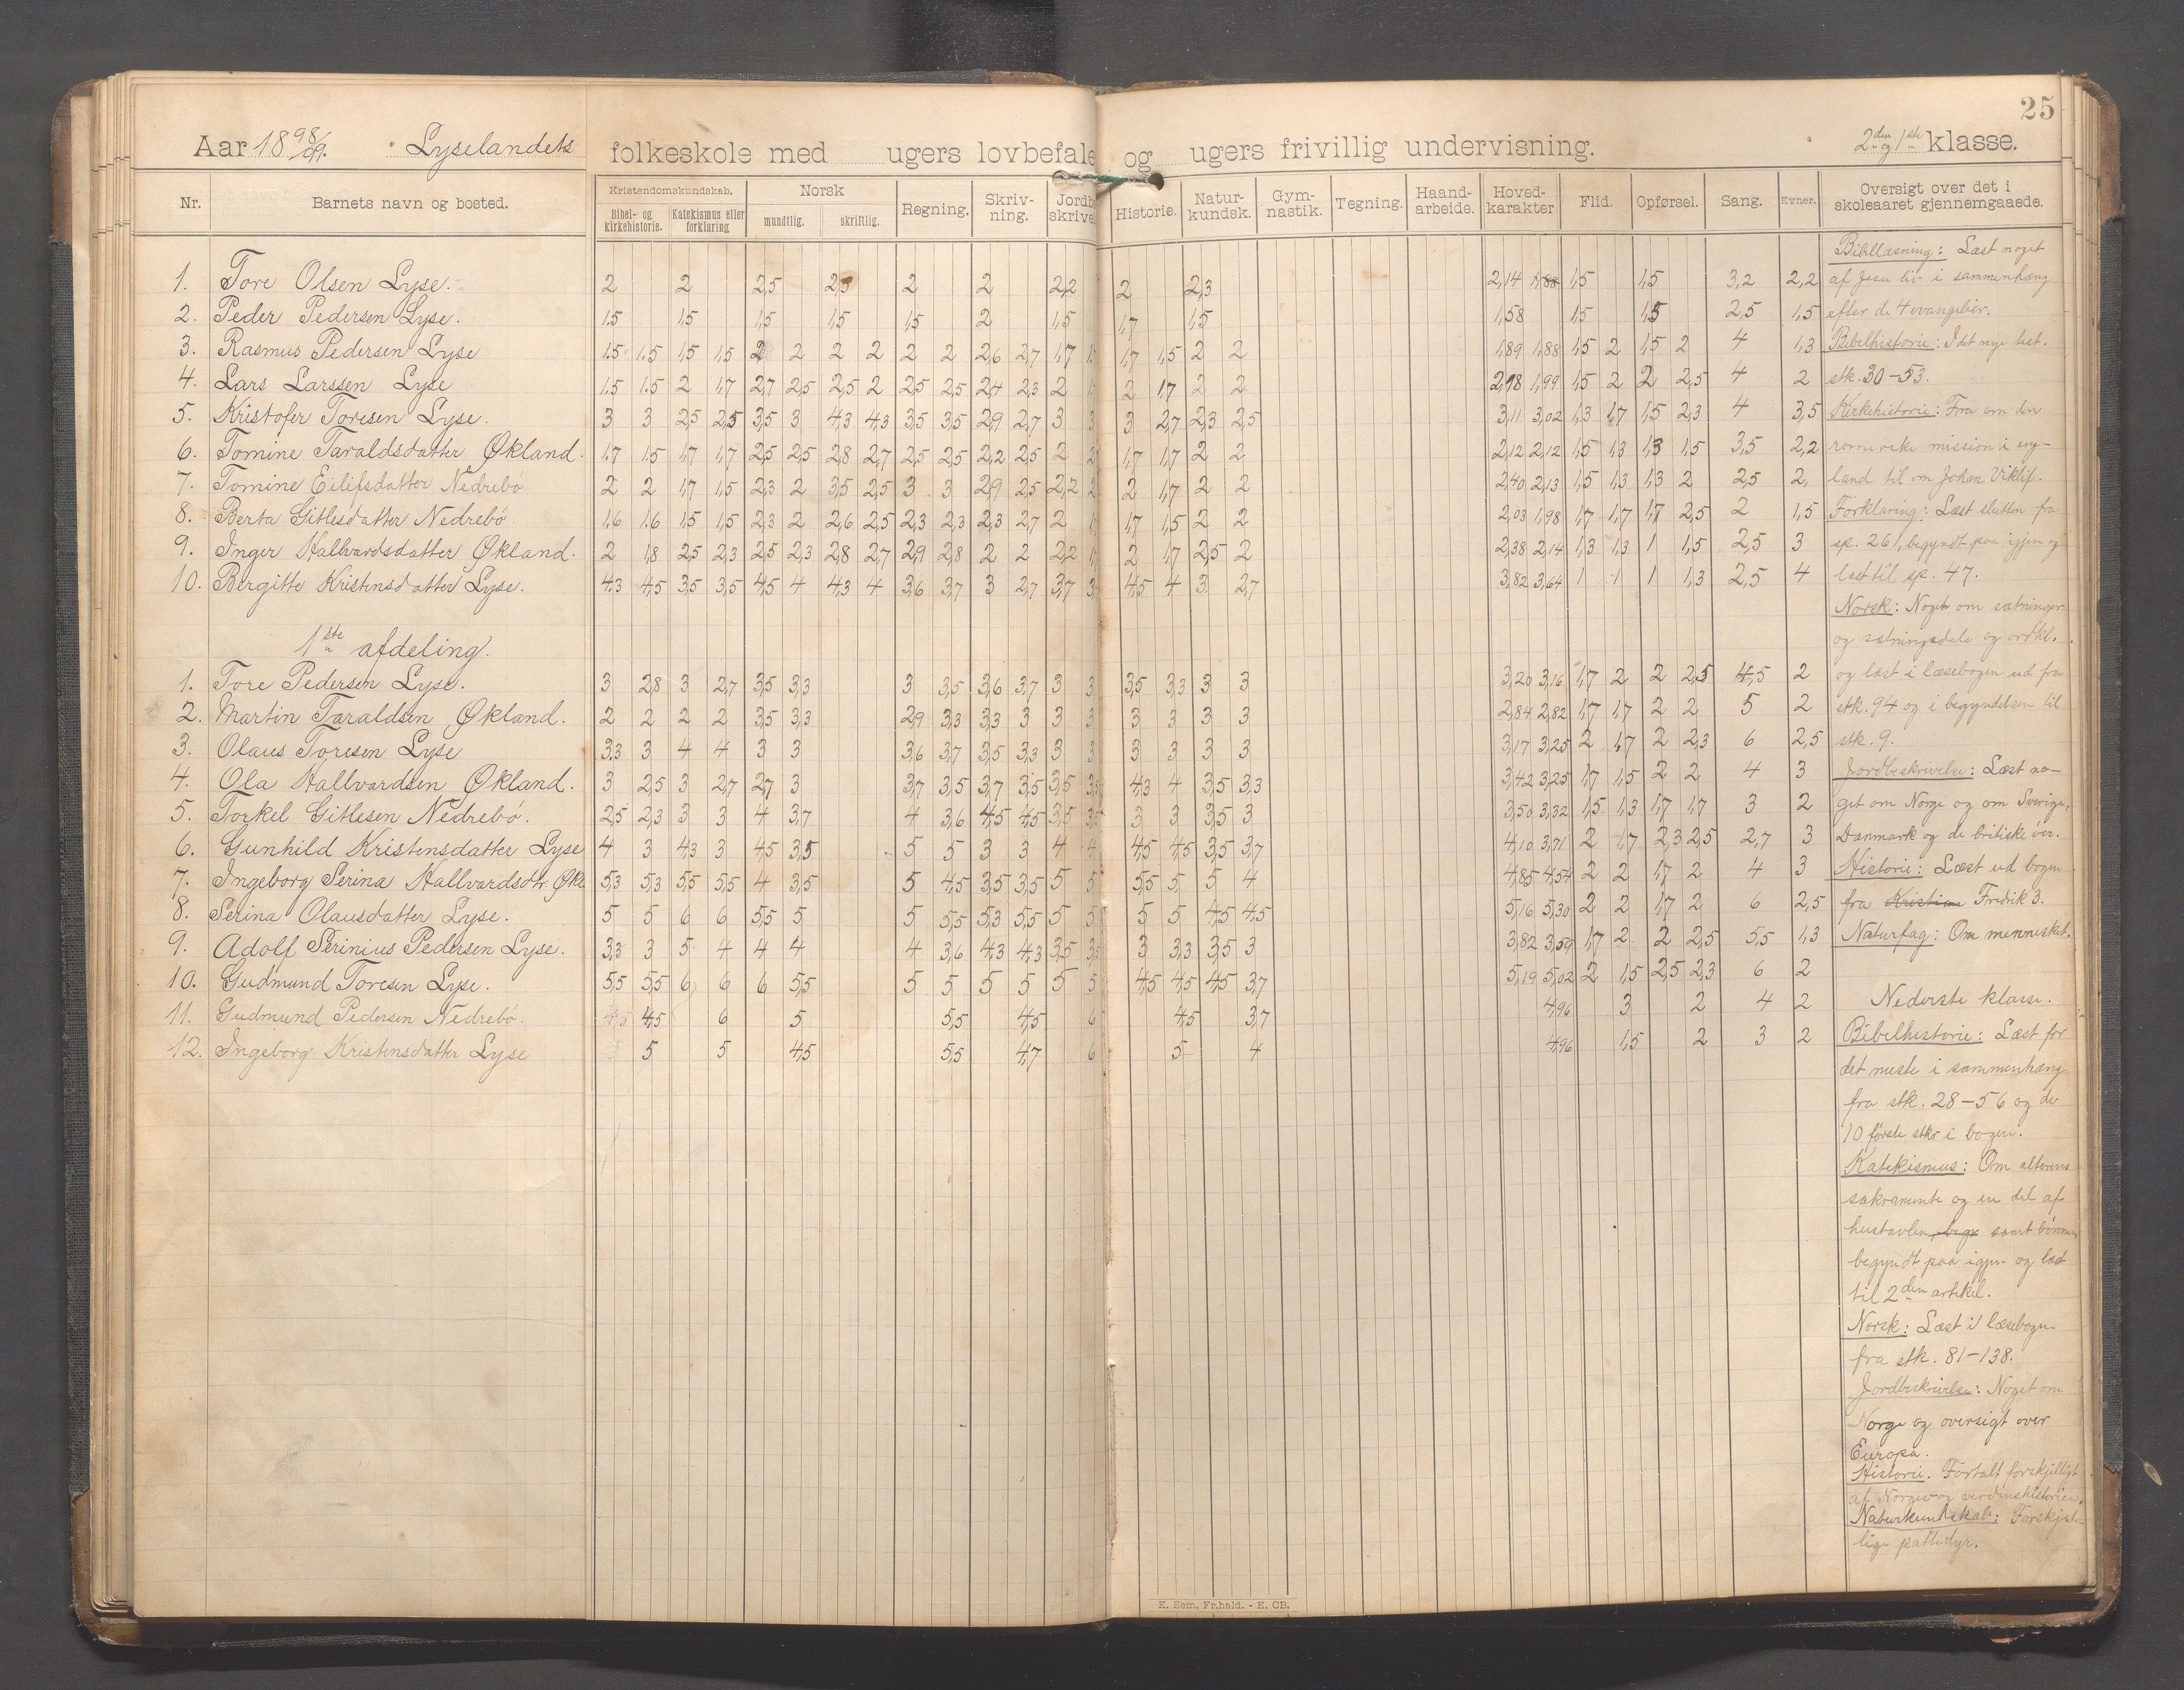 25
Aar 1898/99. Lyselandets folkeskole med ugers lovbefale og ugers frivillig undervisning. 2den og 1ste klasse.
Nr. Barnets navn og bosted. Kristendomskundskab. Bibel- og kirkehistorie. Katekismus eller forklaring Norsk mundtlig. skriftlig. Regning. Skriv-ning. Jordb skrive Historie. Natur-kundsk. Gym-nastik. Tegning. Haand-arbeide. Hoved-karakter Flid. Opførsel. Sang. Evner. Oversigt over det i skoleaaret gjennemgaaede.
1. Tore Olsen Lyse. 2 2 2,5 2,3 2 2 2,2 2 2,3 2,14 1,88 1,5 1,5 3,2 2,2
2. Peder Pedersen Lyse. 1.5 1,5 1,5 1,5 1,5 2 1,5 1,7 1,5 1,58 1,5 1,5 2,5 1,5
3. Rasmus Pedersen Lyse 1.5 1.5 1,5 1,5 2 2 2 2 2 2 2,6 2,7 1,7 1,7 1,5 2 2 1,89 1,88 1,5 2 1,5 2 4 1,3
4. Lars Larssen Lyse 1.5 1.5 2 1,7 2,7 2,5 2,5 2 2,5 2,5 2,4 2,3 2 2 1,7 2 2 2,18 1,99 1,5 2 2 2,5 4 2
5. Kristofer Toresen Lyse. 3 3 2,5 2,5 3,5 3 4,3 4,3 3,5 3,5 2,9 2,7 3 3 3 2,7 2,3 2,5 3,11 3,02 1,3 1,7 1,5 2,3 4 3,5
6. Tomine Taraldsdatter Økland. 1.7 1.5 1,7 1,7 2,5 2,5 2,8 2,7 2,5 2,5 2,2 2,5 2 1,7 1,7 2 2 2,12 2,12 1,5 1,3 1,3 1,5 3,5 2,2
7. Tomine Eilifsdatter Nedrebø 2 2 1,7 1,5 2,3 2 3,5 2,5 3 3 2,9 2,5 2,2 2 1,7 2 2 2,40 2,13 1,5 1,3 1,3 2 2,5 2,
8. Berta Gitlesdatter Nedrebø. 1.6 1.6 1,5 1,5 2,3 2 2,6 2,5 2,3 2,3 2,3 2,7 2 1,7 1,5 2 2 2,03 1,98 1,7 1,7 1,7 2,5 2 1,5
9. Inger Hallvardsdatter Økland. 2 1,8 2,5 2,3 2,5 2,3 2,8 2,7 2,9 2,8 2 2 2,2 2 1,7 2,5 2 2,38 2,14 1,3 1,3 1 1,5 2,5 3
10. Birgitte Kristensdatter Lyse. 4.3 4,5 3,5 3,5 4,5 4 4,3 4 3,6 3,7 3 2,7 3,7 4,5 4 3 2,7 3,82 3,64 1 1 1 1,3 2,5 4
1ste afdeling.
1. Tore Pedersen Lyse. 3 2,8 3 2,7 3,5 3,3 3 3,5 3,6 3,7 3 3 3,5 3,3 3 3 3,20 3,16 1,7 2 2 2,5 4,5 2
2. Martin Taraldsen Økland. 2 2 2 2 3,5 3,3 2,9 3,3 3,3 3 3 3 3 3 3 3 2,84 2,82 1,7 1,7 2 2 5 2
3. Olaus Toresen Lyse 3.3 3 4 4 3 3 3,6 3,7 3,5 3,3 3 3 3 3 3 3 3,17 3,25 2 1,7 2 2,3 6 2,5
4. Ola Hallvardsen Økland. 3 2,5 3 2,7 2,7 3 3,7 3,5 3,7 3,5 3,5 4,3 4 3,5 3,3 3,42 3,25 1,7 1,5 2 2 4 3
5. Torkel Gitlesen Nedrebø. 2,5 2,3 3 3 4 3,7 4 3,6 4,5 4,5 3,5 3 3 3,5 3 3,50 3,32 1,5 1,3 1,7 1,7 3 2
6. Gunhild Kristensdatter Lyse 4 3 4,3 3 4,5 3,5 5 5 3 3 4 4 4,5 4,5 3,5 3,7 4,10 3,71 2 1,7 2,3 2,5 2,7 3
7. Ingeborg Serina Hallvardsdtr. Økl 5,3 5,3 5,5 5,5 4 3,5 5 4,5 3,5 3,5 5 5 5,5 5 5 4 4,85 4,54 2 2 1,7 2 4 3
8. Serina Olausdatter Lyse. 5 5 6 6 5,5 5 5 5,5 5,3 5,5 5 5 5 5 4,5 4,5 5,16 5,30 2 2 1,7 2 6 2,5
9. Adolf Serinius Pedersen Lyse. 3,3 3 5 4 4 4 4 3,6 4,3 4,3 3,5 3 3,3 3,5 3 3,82 3,59 1,7 2 2 2,5 5,5 1,3
10. Gudmund Toresen Lyse. 5,5 5,5 6 6 6 5,5 5 5 5 5 5 5 4,5 4,5 4,5 3,7 5,19 5,02 2 1,5 2,5 2,3 6 2
11. Gudmund Pedersen Nedrebø. 4,5 6 5 5,5 4,5 6 4,5 3,7 4,96 3 2 4 2
12. Ingeborg Kristensdatter Lyse 5 5 4,5 5,5 4,7 6 5 4 4,96 1,5 2 3 2
Bibellæsning: Læst noget
af Jesu liv i sammenhæng
efter de 4 evangelier.
Bibelhistorie: I det nye test.
stk. 30-53.
Kirkehistorie: Fra om den
romerske mission i eng-
land til om Johan Viklif.
Forklaring: Læst slutten fra
sp. 261, begyndt paa igjen og
læst til sp. 47.
Norsk: Noget om sætninger
og sætningsdele og ordkl.
og læst i læsebogen ud fra
stk. 94 og i begyndelsen til
stk. 9.
Jordbeskrivelse: Læst no-
get om Norge og om Sverige,
Danmark og de britiske øer.
Historie: Læst ud bogen
fra Kristian Fredrik 3.
Naturfag: Om mennesket.
Nederste klasse.
Bibelhistorie: Læst for
det meste i sammenhæng
fra stk. 28-56 og de
10 første stkr i bogen.
Katekismus: Om alterens
sakramente og en del af
hustavlen, begy samt bønnen,
begyndt paa igjen og læst
til 2den artikel.
Norsk: Læst i læsebogen
fra stk. 81-138.
Jordbeskrivelse: Noget om
Norge og oversigt over
Europa.
Historie. Fortalt forskjelligt
af Norges- og verdenshistorien.
Naturkundskab: Forskjel-
lige pattedyr.
E. Sem, Fr.hald. - E. CB.